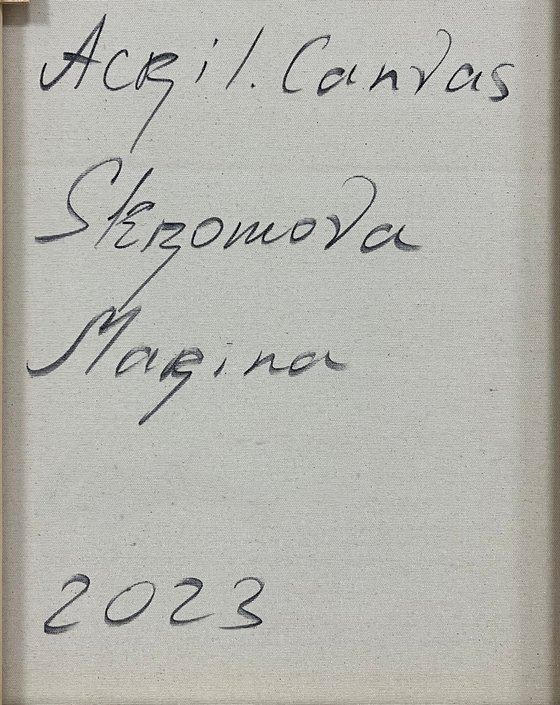 Acril. Canvas
Skromova
Marina
2023